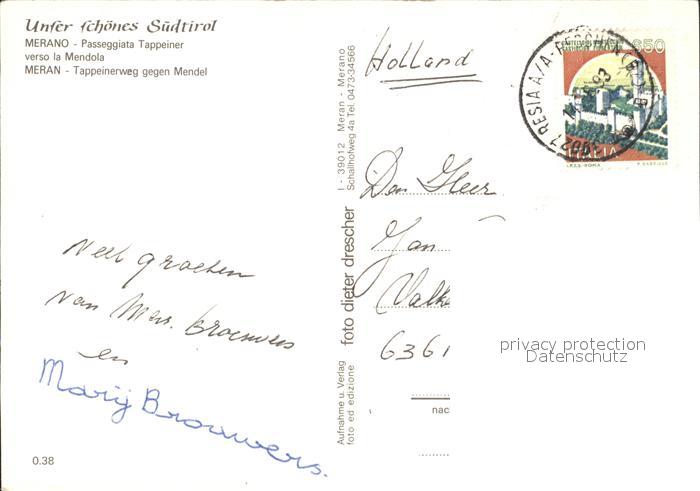 Unser schönes Südtirol
MERANO - Passeggiata Tappeiner
verso la Mendola
MERAN - Tappeinerweg gegen Mendel
Veel groeten
van Mevr. Brouwers
en
Marij Brouwers.
0.38
I - 39012 Meran - Merano
Schallhofweg 4a Tel. 0473-34566
foto dieter drescher
Aufnahme u. Verlag
foto ed edizione
Holland
650
ITALIA
I.P.Z.S. - ROMA
RESIA A/A
Den Heer
Jan
Valk
6361
nac
privacy protection
Datenschutz